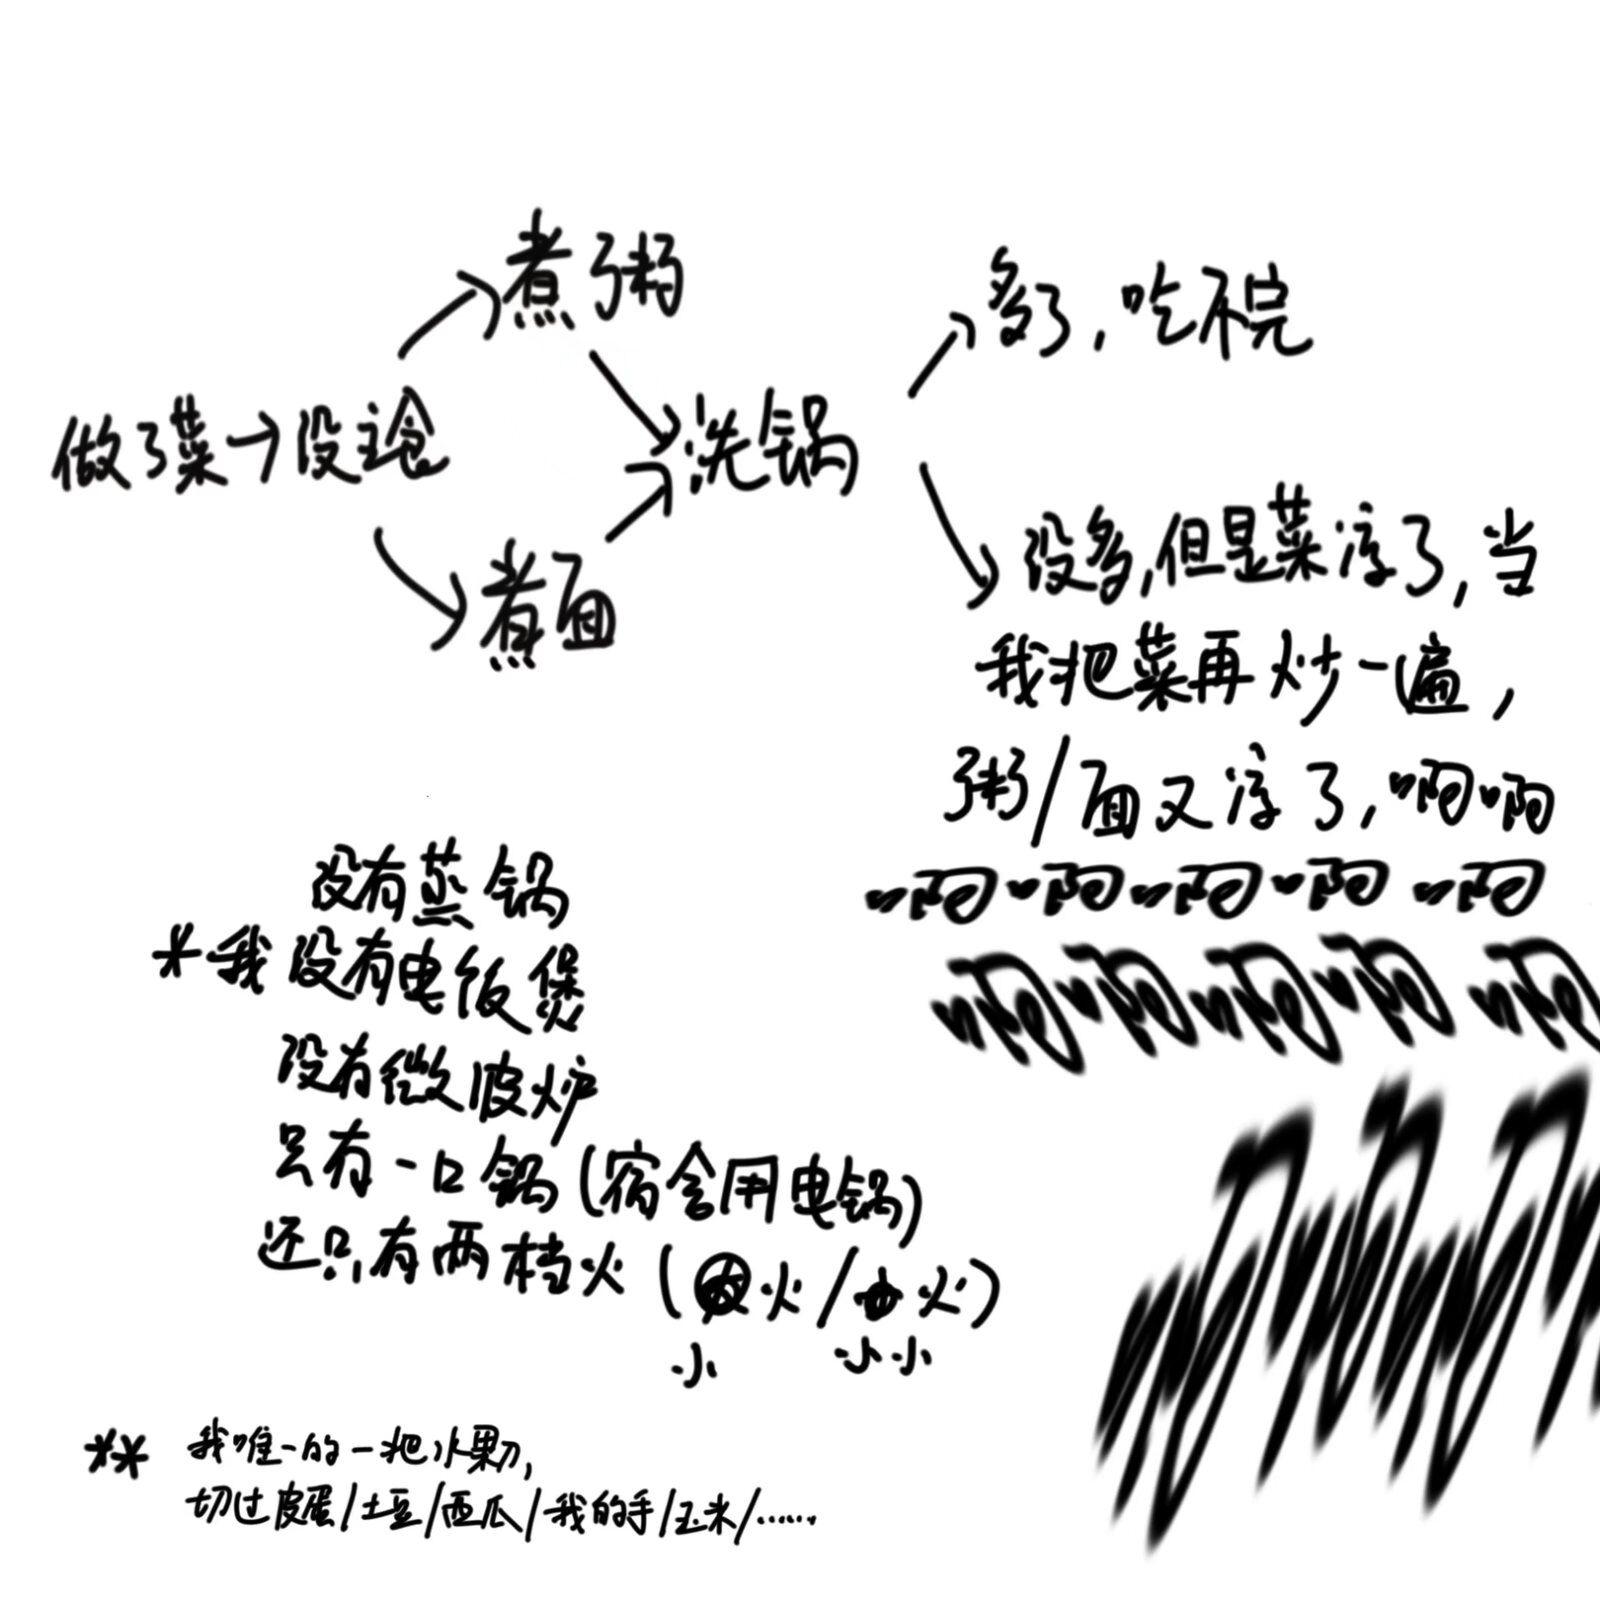 煮粥
做了菜→没主食
煮面
洗锅
多了，吃不完
没多，但是菜凉了，当
我把菜再炒一遍，
粥/面又凉了，啊啊
啊啊啊啊啊
啊啊啊啊啊
啊啊啊
没有蒸锅
*我没有电饭煲
没有微波炉
只有一口锅(宿舍用电锅)
还只有两档火(大火/中火)
小 小小
** 我唯一的一把水果刀，
切过皮蛋/土豆/西瓜/我的手/玉米/……